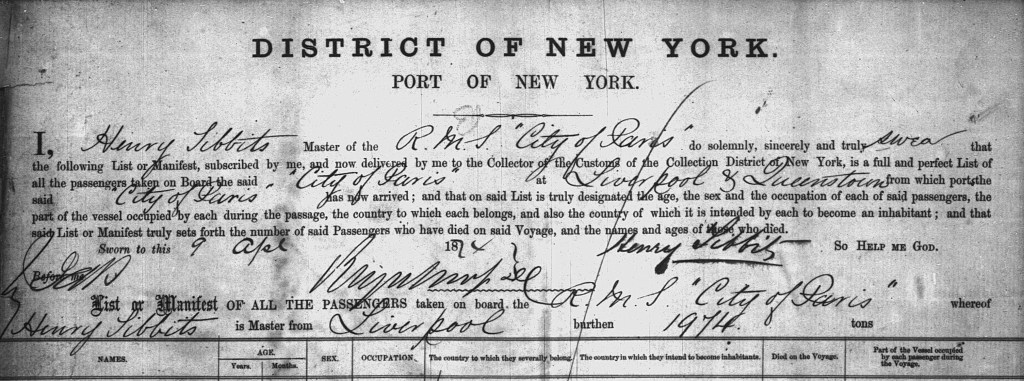 DISTRICT OF NEW YORK.
PORT OF NEW YORK.
I, Henry Tibbits Master of the R. M. S. "City of Paris" do solemnly, sincerely and truly swea that
the following List or Manifest, subscribed by me, and now delivered by me to the Collector of the Customs of the Collection District of New York, is a full and perfect List of
all the passengers taken on Board the said "City of Paris" at Liverpool & Queenstown from which port, the
said "City of Paris" has now arrived; and that on said List is truly designated the age, the sex and the occupation of each of said passengers, the
part of the vessel occupied by each during the passage, the country to which each belongs, and also the country of which it is intended by each to become an inhabitant; and that
said List or Manifest truly sets forth the number of said Passengers who have died on said Voyage, and the names and ages of those who died.
Sworn to this 9 Apl 1874 Henry Tibbits SO HELP ME GOD.
Before me
List or Manifest OF ALL THE PASSENGERS taken on board the R. M. S. "City of Paris" whereof
Henry Tibbits is Master from Liverpool burthen 1974. tons
NAMES. AGE. Years. Months. SEX. OCCUPATION. The country to which they severally belong. The country in which they intend to become inhabitants. Died on the Voyage. Part of the Vessel occupied by each passenger during the Voyage.